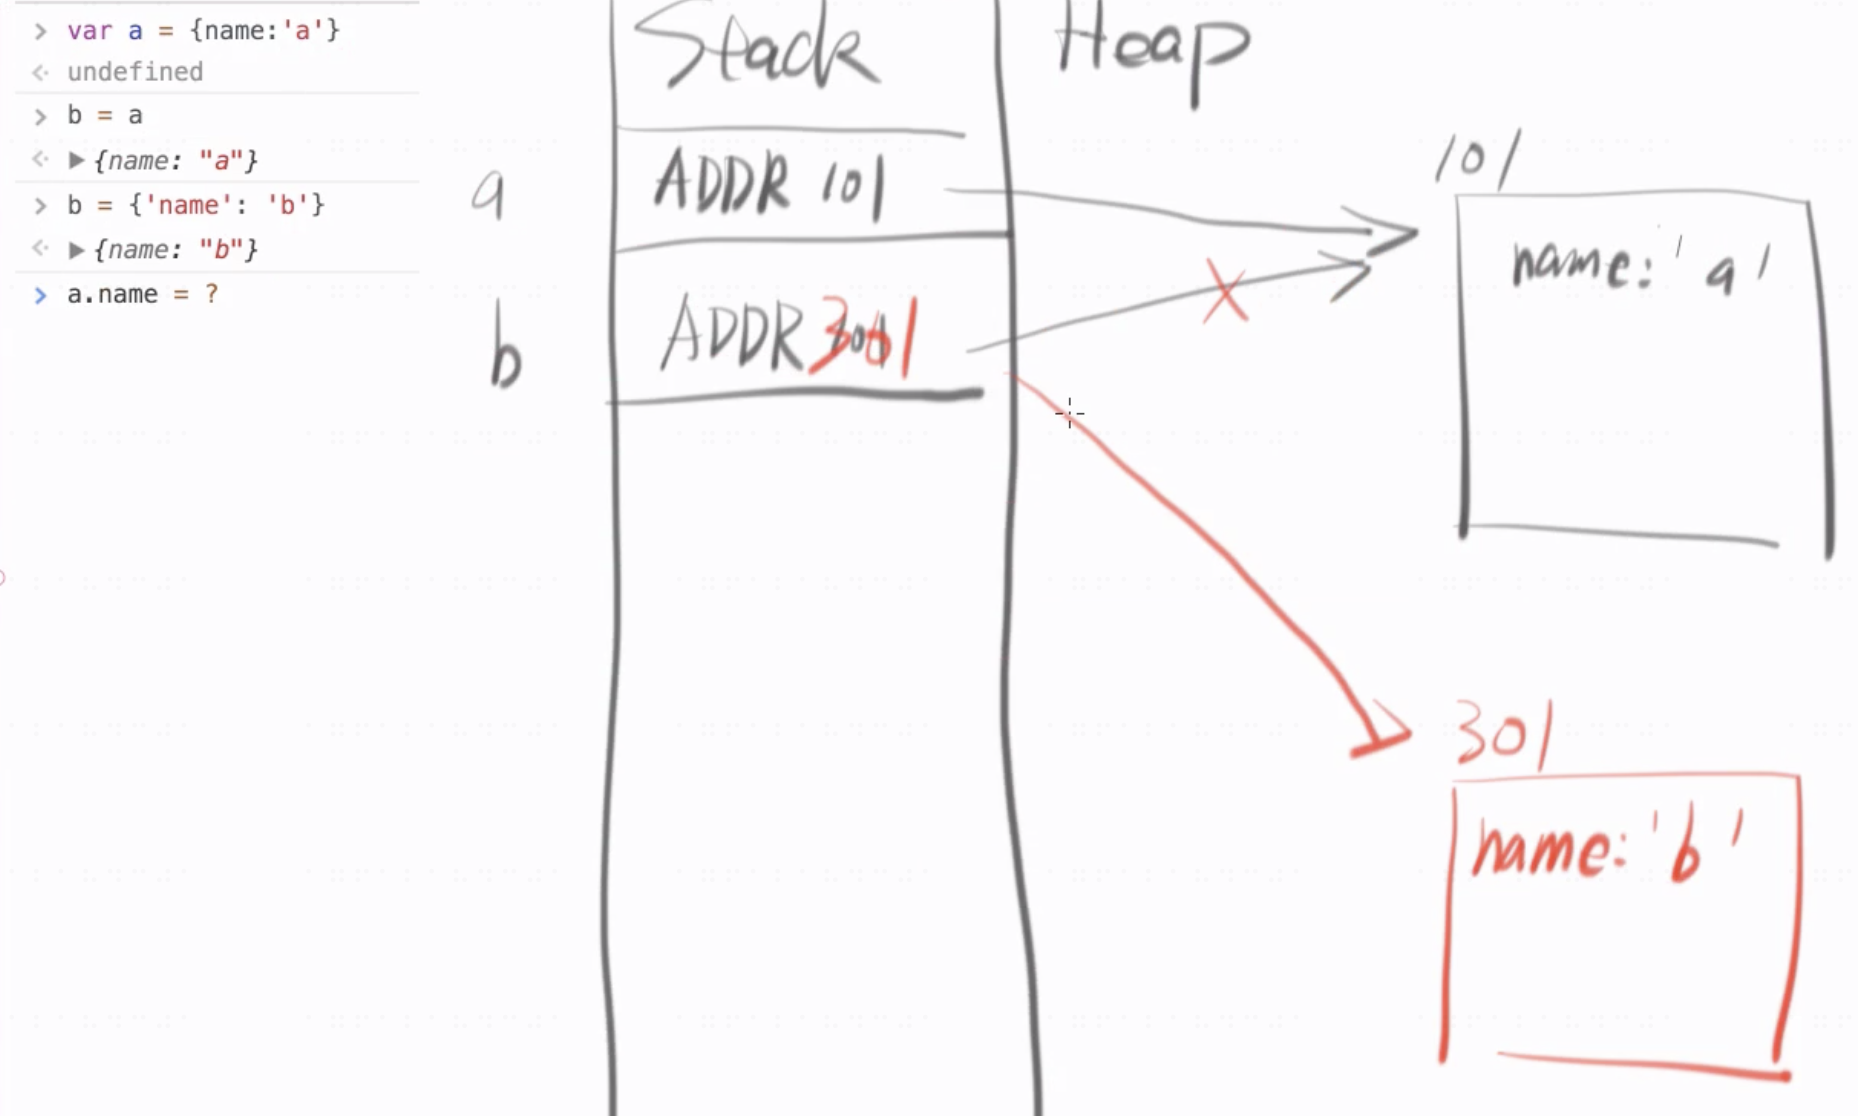 > var a = {name:'a'}
<· undefined
> b = a
<· ▶ {name: "a"}
> b = {'name': 'b'}
<· ▶ {name: "b"}
> a.name = ?
Stack
Heap
a
ADDR 101
101
name: 'a'
b
ADDR 301
301
name: 'b'